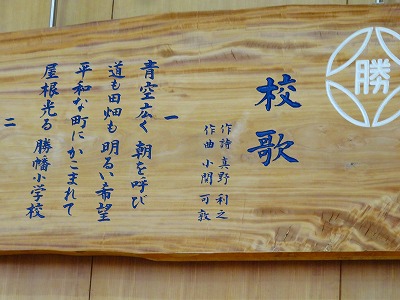 勝
校歌
作詩 真野利之
作曲 小関可敦
一
青空広く 朝を呼び
道も田畑も 明るい希望
平和な町に かこまれて
屋根光る 勝幡小学校
二